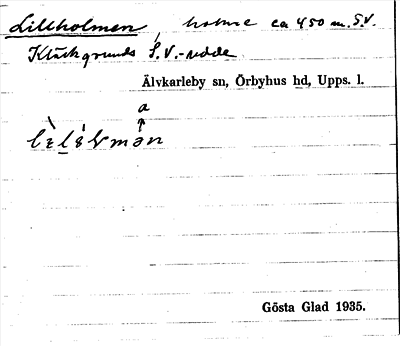 Lillholmen, holme ca 450 m. S.V.
Kläckgrunds S.V.-udde
Älvkarleby sn, Örbyhus hd, Upps. l.
a
Gösta Glad 1935.